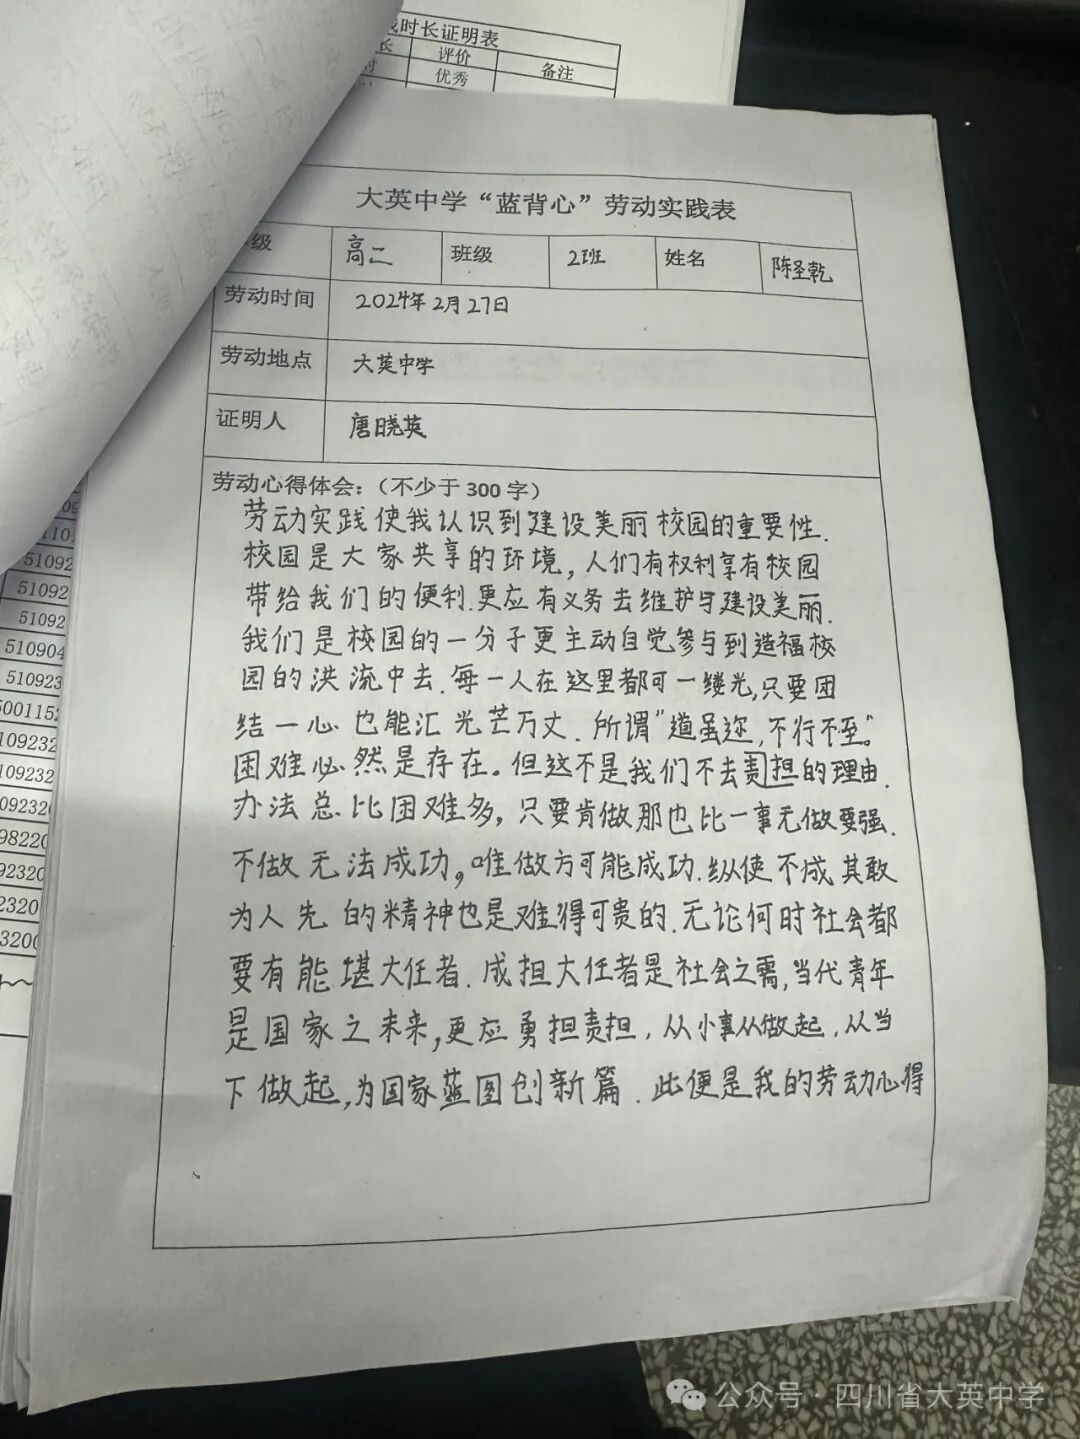 时长证明表
长 评价 备注
时 优秀
大英中学“蓝背心”劳动实践表
级 高二 班级 2班 姓名 陈圣乾
劳动时间 2024年2月27日
劳动地点 大英中学
证明人 唐晓英
劳动心得体会：（不少于300字）
劳动实践使我认识到建设美丽校园的重要性.
校园是大家共享的环境，人们有权利享有校园
带给我们的便利.更应有义务去维护与建设美丽.
我们是校园的一分子更主动自觉参与到造福校
园的洪流中去.每一人在这里都可一缕光,只要团
结一心也能汇光芒万丈.所谓“道虽迩,不行不至。”
困难必然是存在。但这不是我们不去责担的理由.
办法总比困难多，只要肯做那也比一事无做要强.
不做无法成功。唯做方可能成功.纵使不成其敢
为人先的精神也是难得可贵的.无论何时社会都
要有能堪大任者.成担大任者是社会之需,当代青年
是国家之未来,更应勇担责担.从小事从做起.从当
下做起,为国家蓝图创新篇.此便是我的劳动心得
51092
5109
5109
51090
51092
5001152
1092320
公众号·四川省大英中学